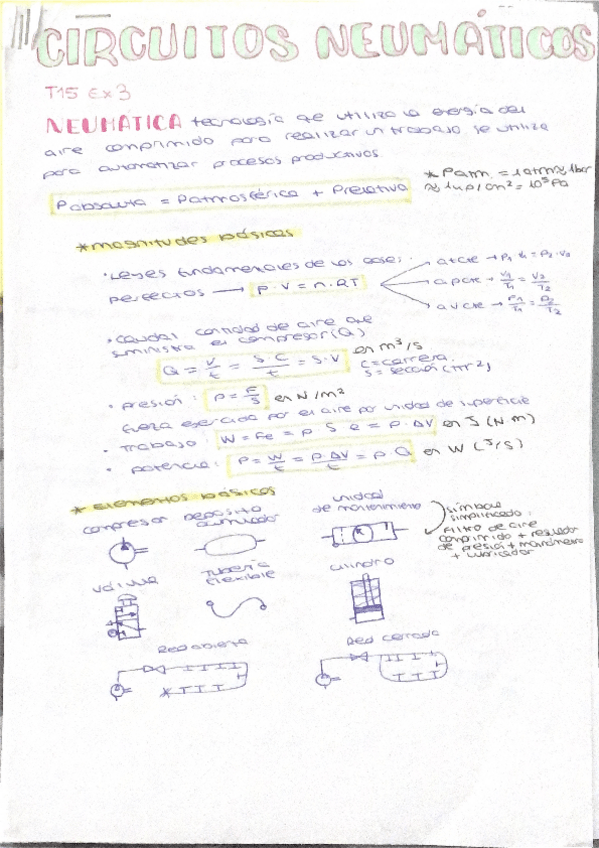 CIRCUITOS NEUMÁTICOS
T15 Ex3
NEUMÁTICA tecnología que utiliza la energía del
aire comprimido para realizar un trabajo, se utiliza
para automatizar procesos productivos
Pabsoluta = Patmosférica + Prelativa
* Patm. = 1atm ≈ 1bar
≈ 1kp/cm² = 10⁵ Pa
*magnitudes básicas
· Leyes fundamentales de los gases
perfectos → p · V = n · RT
a t cte → P₁ · V₁ = P₂ · V₂
a p cte → V₁/T₁ = V₂/T₂
a V cte → P₁/T₁ = P₂/T₂
· caudal: cantidad de aire que
suministra el compresor (Q)
Q = V/t = S·C/t = S·V en m³/s
C = carrera
S = sección (πr²)
· presión: p = F/S en N/m²
fuerza ejercida por el aire por unidad de superficie
· Trabajo: W = Fe = p · S · e = p · ΔV en J (N·m)
· potencia: P = W/t = p·ΔV/t = p · Q en W (J/S)
* elementos básicos
compresor
Depósito
acumulador
unidad
de mantenimiento
símbolo
simplificado:
filtro de aire
comprimido + regulador
de presión + manómetro
+ lubricador
válvula
Tubería
flexible
cilindro
Red abierta
Red cerrada